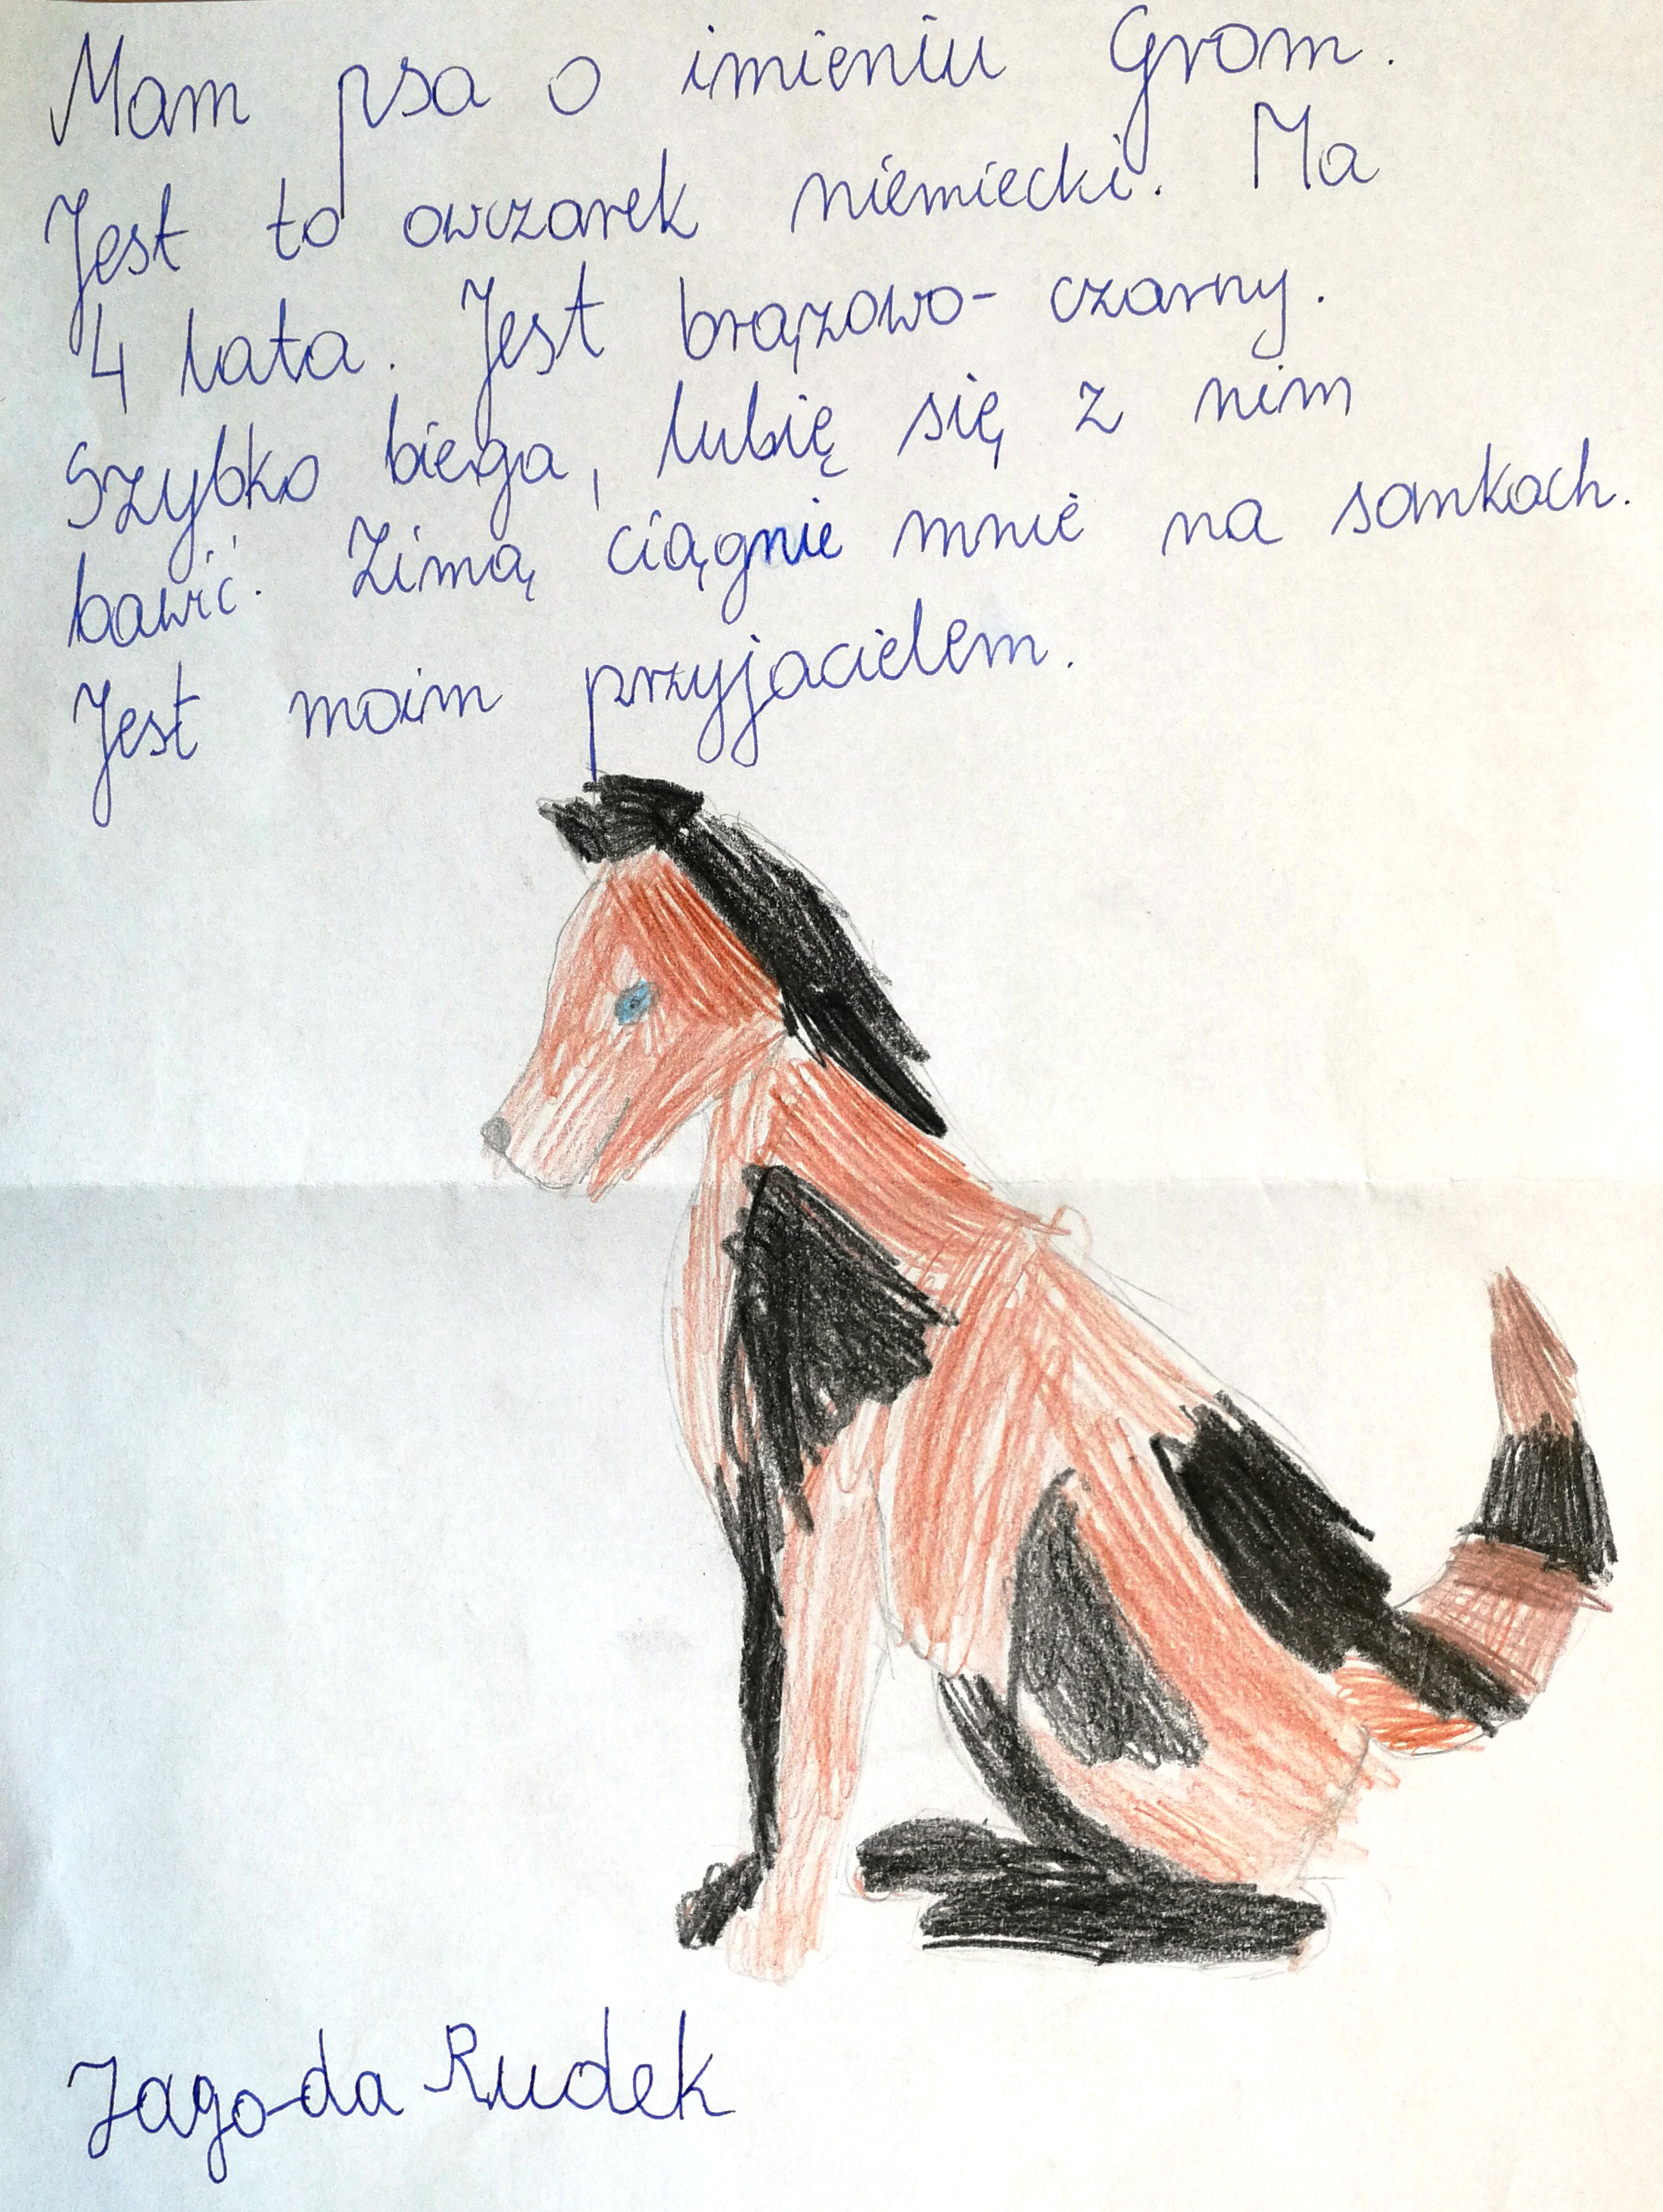 Mam psa o imieniu Grom.
Jest to owczarek niemiecki. Ma
4 lata. Jest brązowo- czarny.
Szybko biega, lubię się z nim
bawić. Zimą ciągnie mnie na sankach.
Jest moim przyjacielem.
Jagoda Rudek